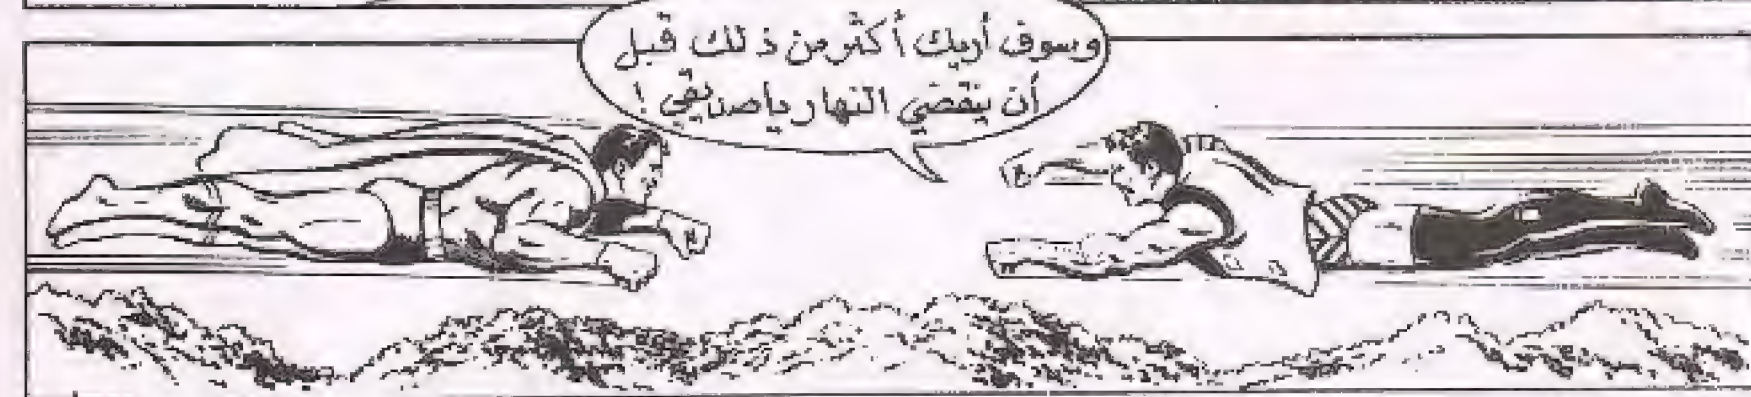 وسوف أريك أكثر من ذلك قبل
أن ينقضي النهار ياصديقي !